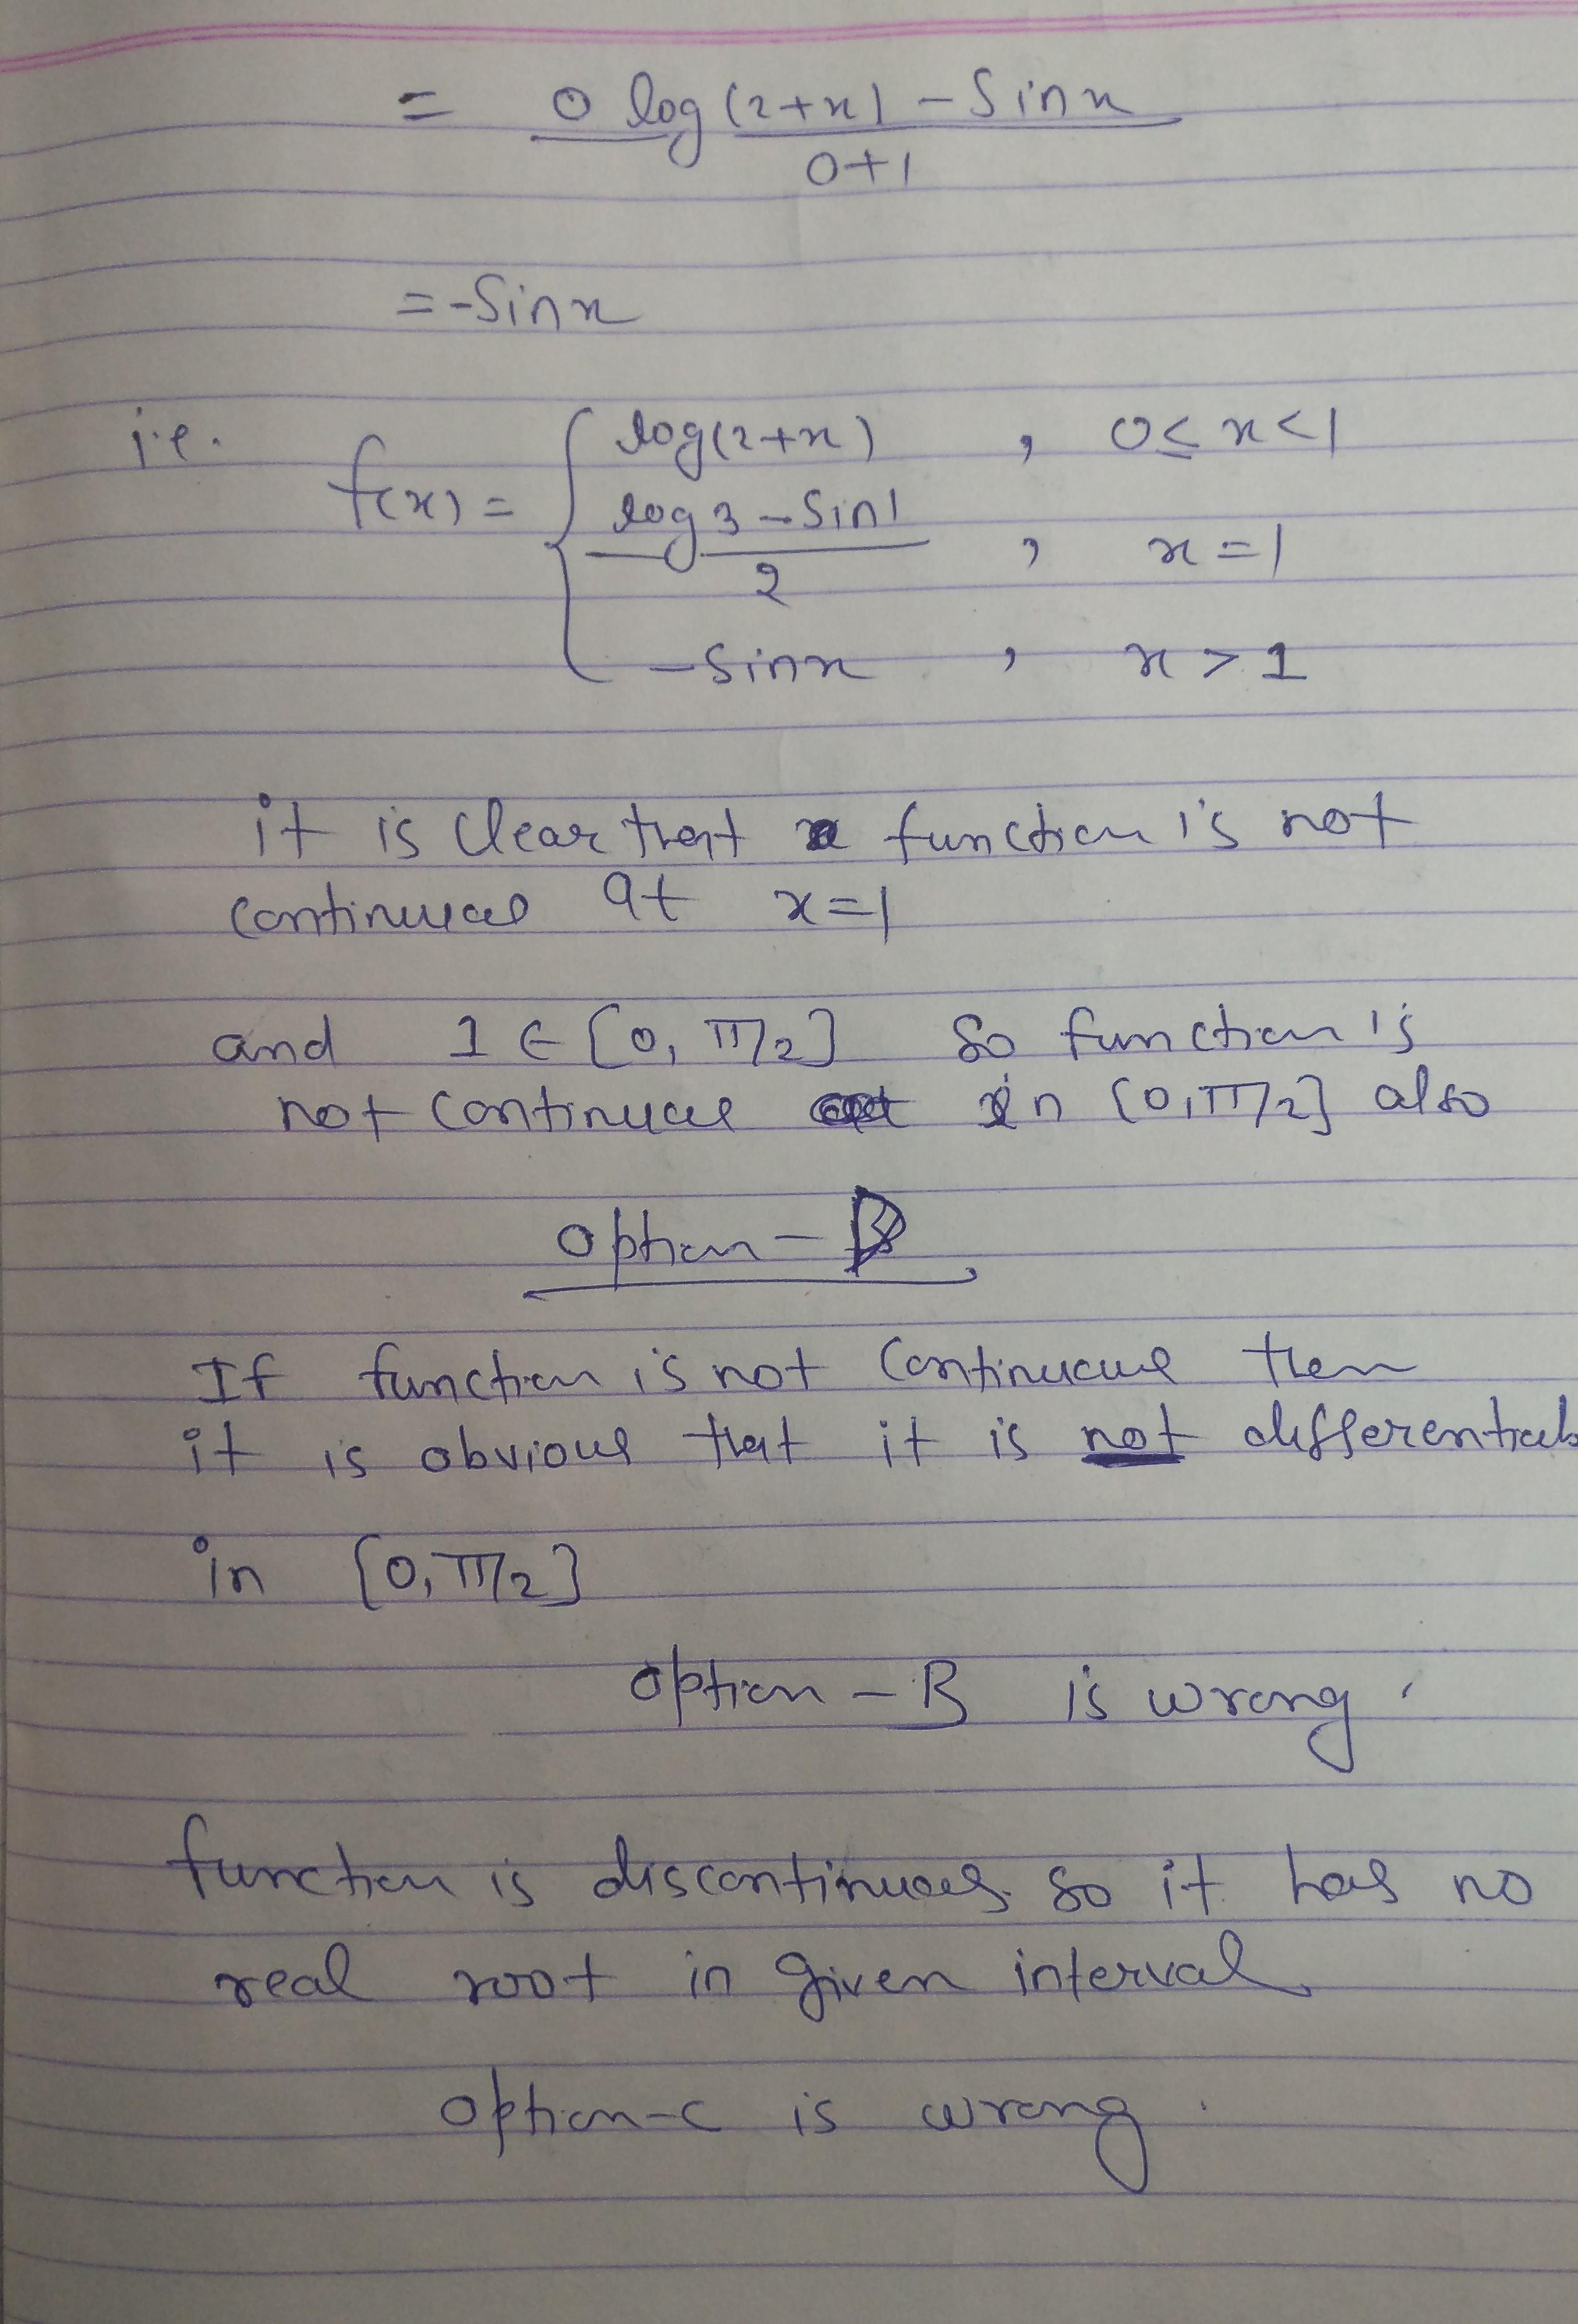 = 0 log(2+x) - Sinx
0+1
= -Sinx
i.e. f(x) = { log(2+x) , 0 ≤ x < 1
log3 - Sin1 / 2 , x = 1
-Sinx , x > 1
it is clear that function is not
continuous at x=1
and 1 ∈ [0, π/2] So function is
not continuous in [0, π/2] also
option - B
If function is not continuous then
it is obvious that it is not differentiab
in [0, π/2]
option - B is wrong.
function is discontinuous so it has no
real root in given interval
option-c is wrong.